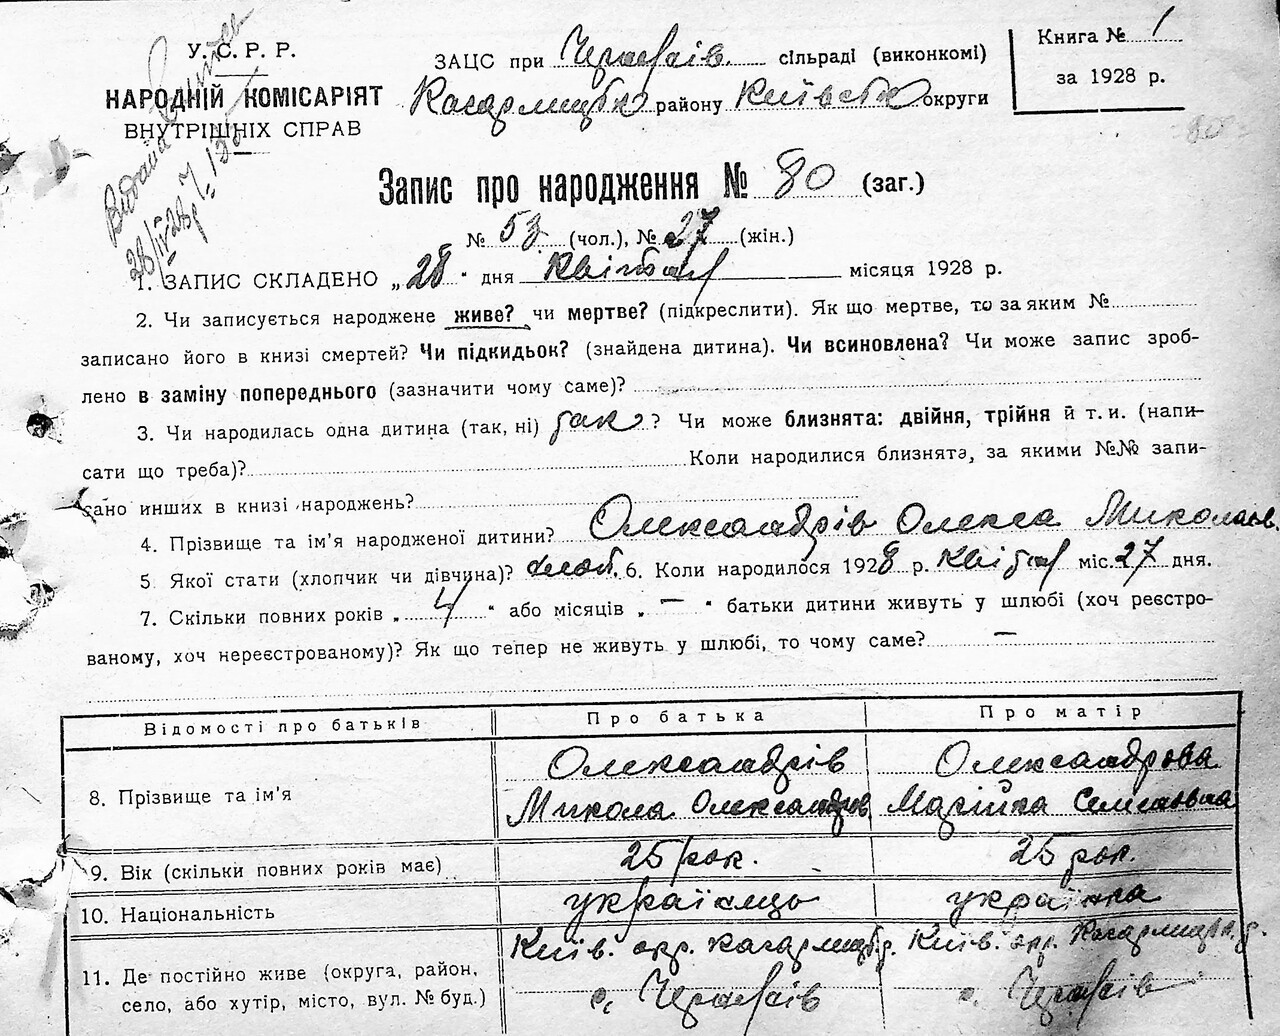 У. С. Р. Р.
НАРОДНІЙ КОМІСАРІЯТ
ВНУТРІШНІХ СПРАВ
Видана
28/IV 28 р.
ЗАЦС при Черняхів сільраді (виконкомі)
Кагарлицьк району Київськ округи
Книга № 1
за 1928 р.
80
Запис про народження № 80 (заг.)
№ 53 (чол.), № 27 (жін.)
1. ЗАПИС СКЛАДЕНО „28" дня Квітня місяця 1928 р.
2. Чи записується народжене живе? чи мертве? (підкреслити). Як що мертве, то за яким №
записано його в книзі смертей? Чи підкидьок? (знайдена дитина). Чи всиновлена? Чи може запис зроб-
лено в заміну попереднього (зазначити чому саме)?
3. Чи народилась одна дитина (так, ні) так ? Чи може близнята: двійня, трійня й т. и. (напи-
сати що треба)? Коли народилися близнята, за якими №№ запи-
сано инших в книзі народжень?
4. Прізвище та ім'я народженої дитини? Олександрів Олекса Миколаєв
5. Якої стати (хлопчик чи дівчина)? хлоп. 6. Коли народилося 1928 р. Квітня міс. 27 дня.
7. Скільки повних років „ 4 " або місяців „ — " батьки дитини живуть у шлюбі (хоч реєстро-
ваному, хоч нереєстрованому)? Як що тепер не живуть у шлюбі, то чому саме? —
Відомості про батьків Про батька Про матір
8. Прізвище та ім'я Олександрів Микола Олександров Олександрова Марійка Семеновна
9. Вік (скільки повних років має) 25 рок. 25 рок.
10. Національність українць українка
11. Де постійно живе (округа, район, Київ. окр. Кагарлицьк. р. Київ. окр. Кагарлицьк. р.
село, або хутір, місто, вул. № буд.) с. Черняхів с. Черняхів